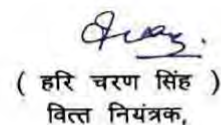 ( हरि चरण सिंह )
वित्त नियंत्रक,